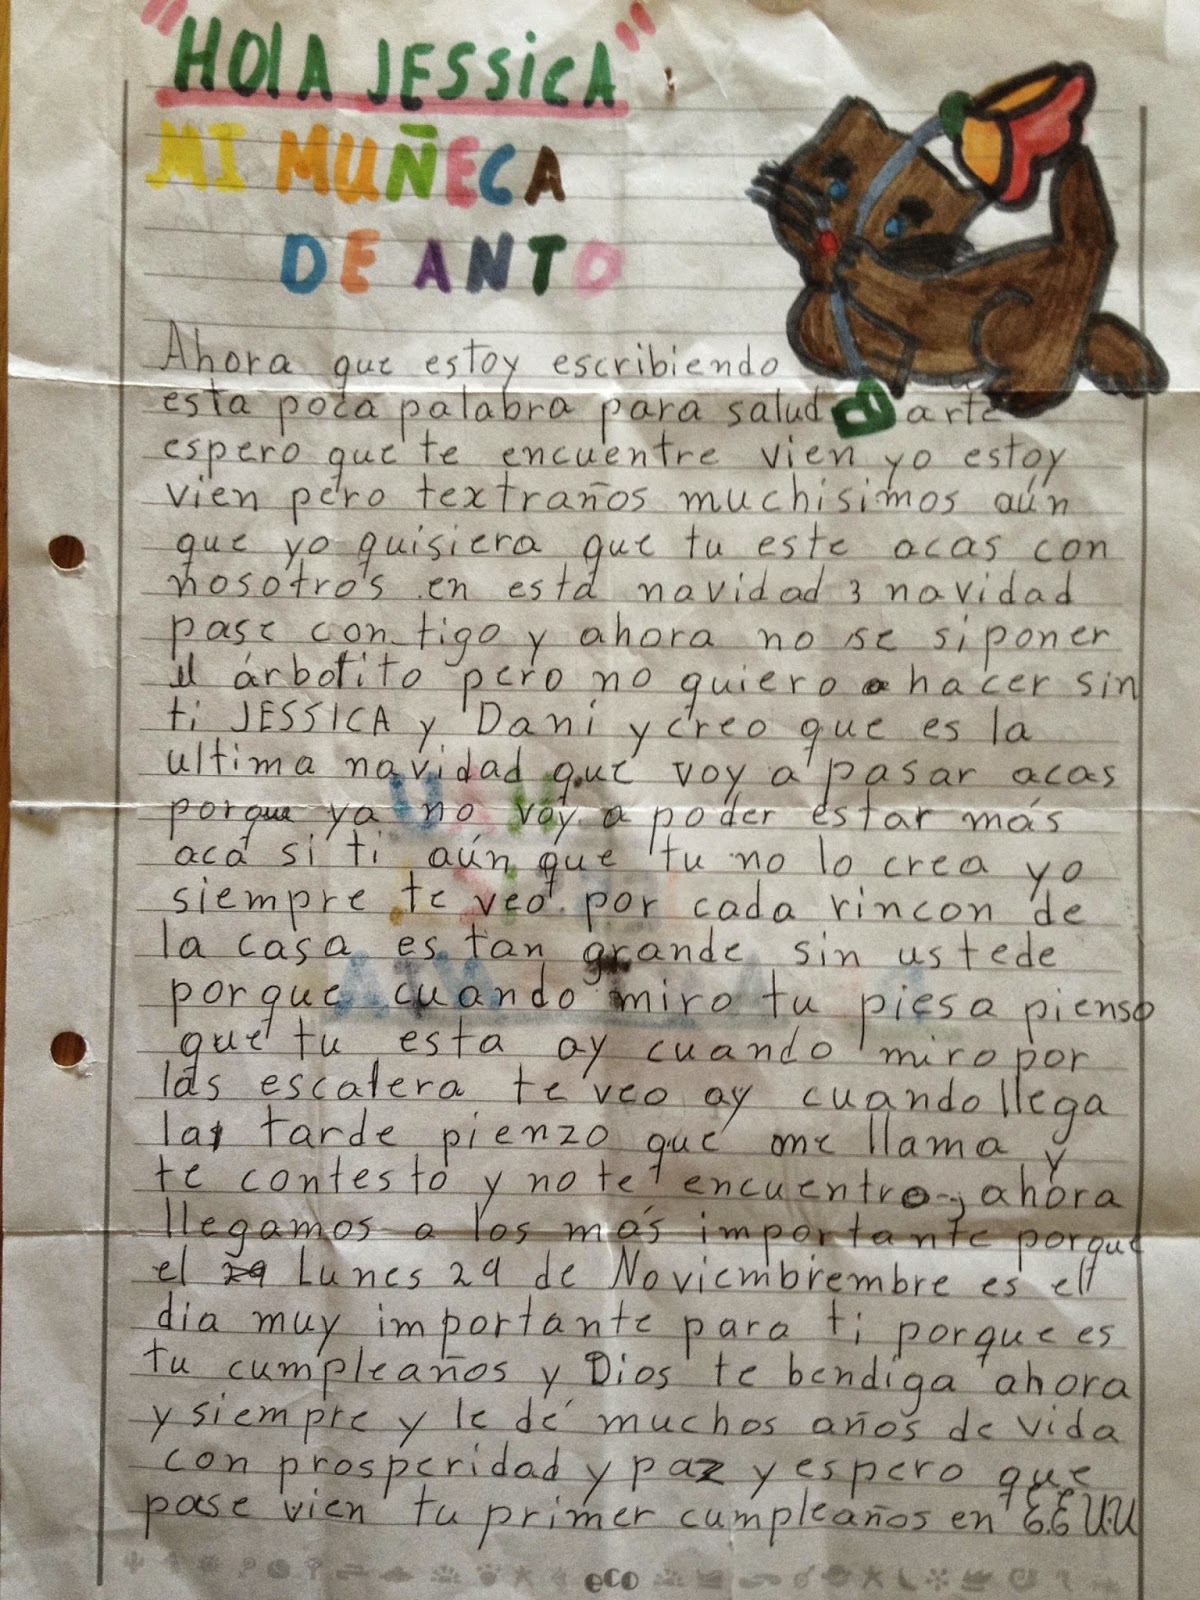 "HOlA JESSiCA"
MI MUÑECA
DE ANTO
Ahora que estoy escribiendo
esta poca palabra para saludarte
espero que te encuentre vien yo estoy
vien pero textraños muchisimos aún
que yo quisiera que tu este acas con
nosotros en esta navidad 3 navidad
pase contigo y ahora no se si poner
el árbolito pero no quiero hacer sin
ti JESSICA y Dani y creo que es la
ultima navidad que voy a pasar acas
porque ya no voy a poder estar más
acá si ti aún que tu no lo crea yo
siempre te veo por cada rincon de
la casa es tan grande sin ustede
porque cuando miro tu piesa pienso
que tu esta ay cuando miro por
las escalera te veo ay cuando llega
la tarde pienzo que me llama y
te contesto y no te encuentro, ahora
llegamos a los más importante porque
el 29 Lunes 29 de Noviembriembre es el
dia muy importante para ti porque es
tu cumpleaños y Dios te bendiga ahora
y siempre y le dé muchos años de vida
con prosperidad y paz y espero que
pase vien tu primer cumpleaños en E.E U.U
eco